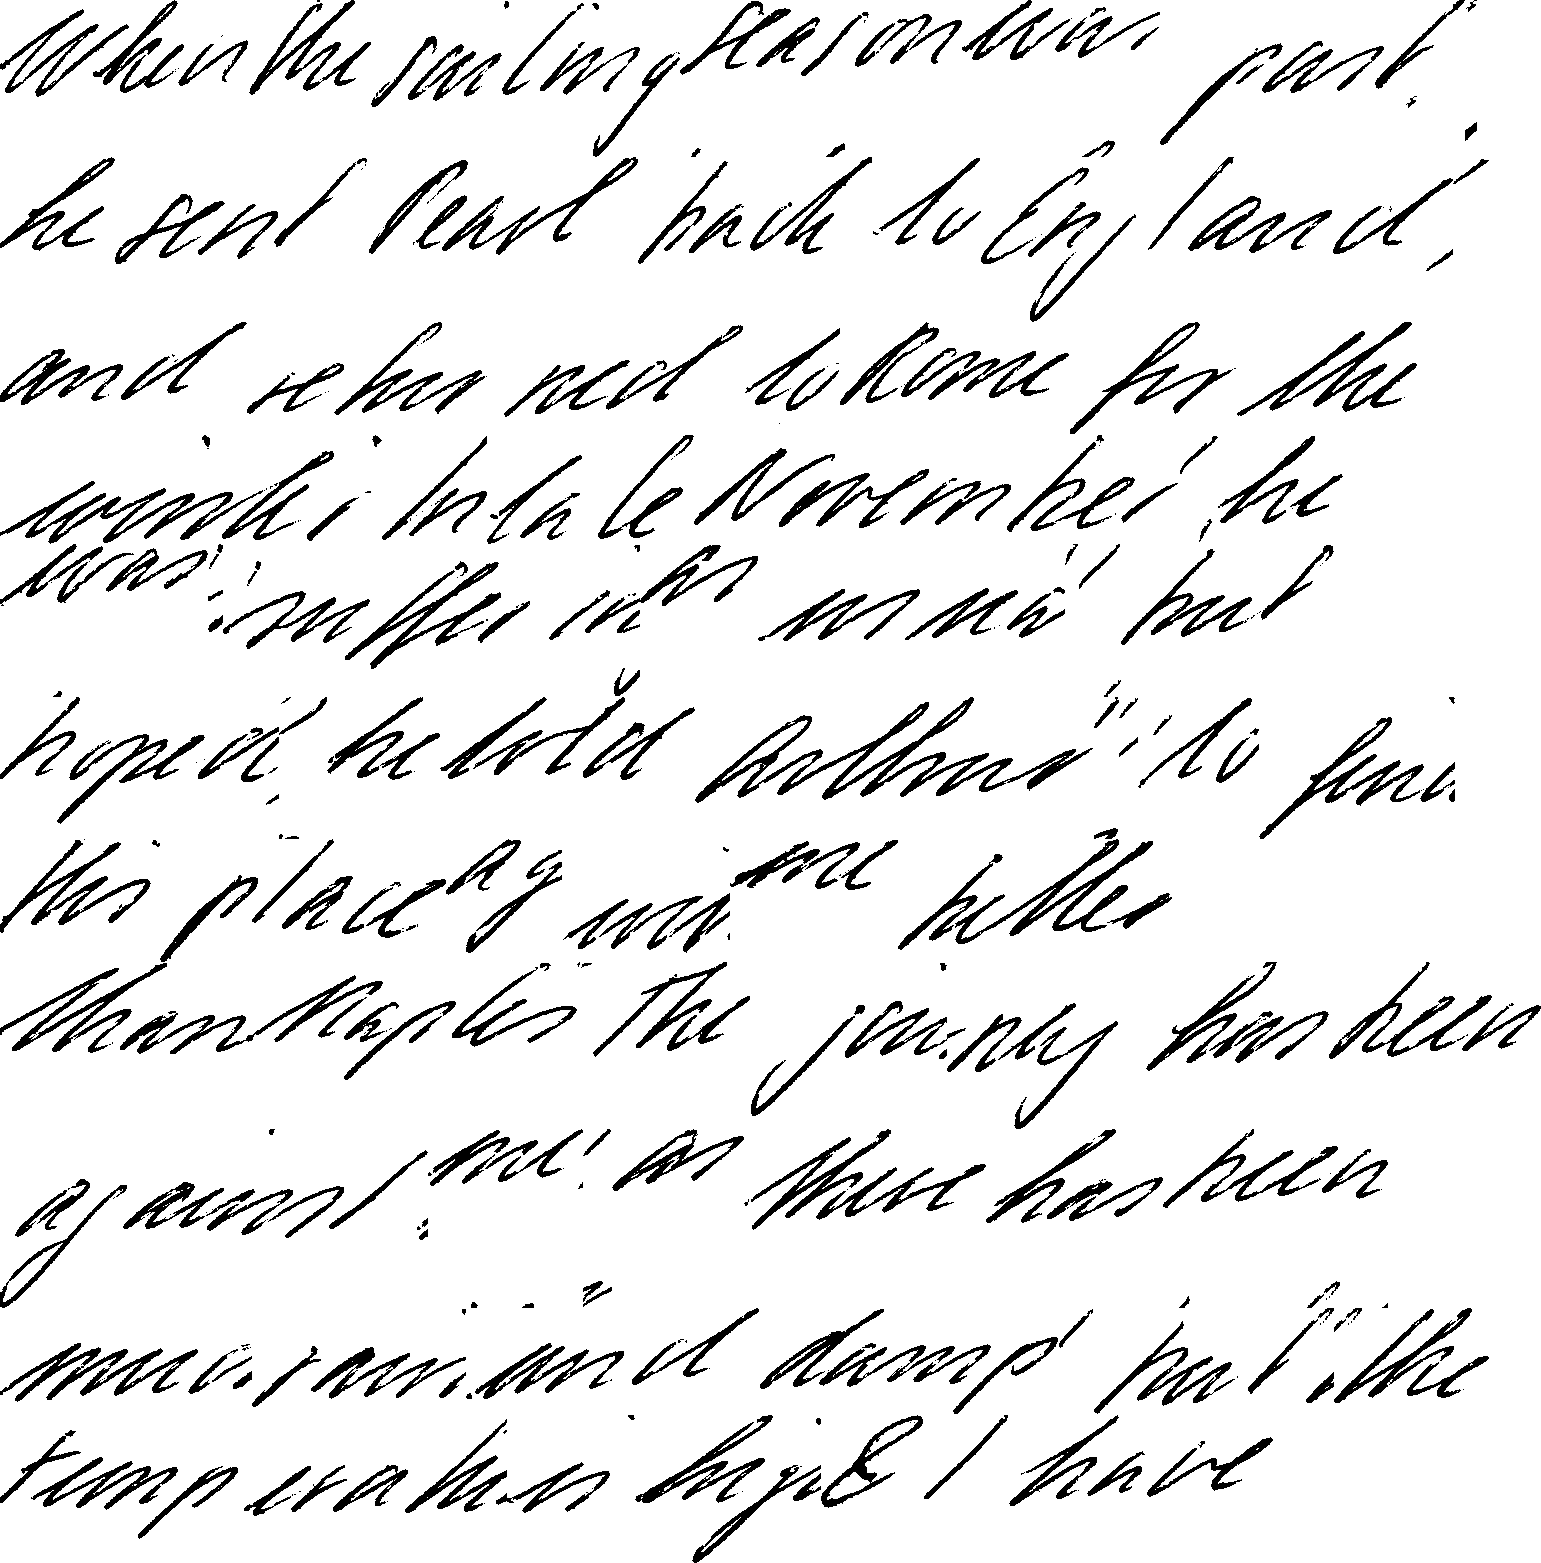 When the sailing season was past,
he sent Pearl back to England,
and returned to Rome for the
winter. In late November he
was suffering as usual but
hoped, he told Arthur "to find
this place ag with me better
than Naples. The journey has been
against me: as there has been
much rain and damp but the
temperature is high & I have